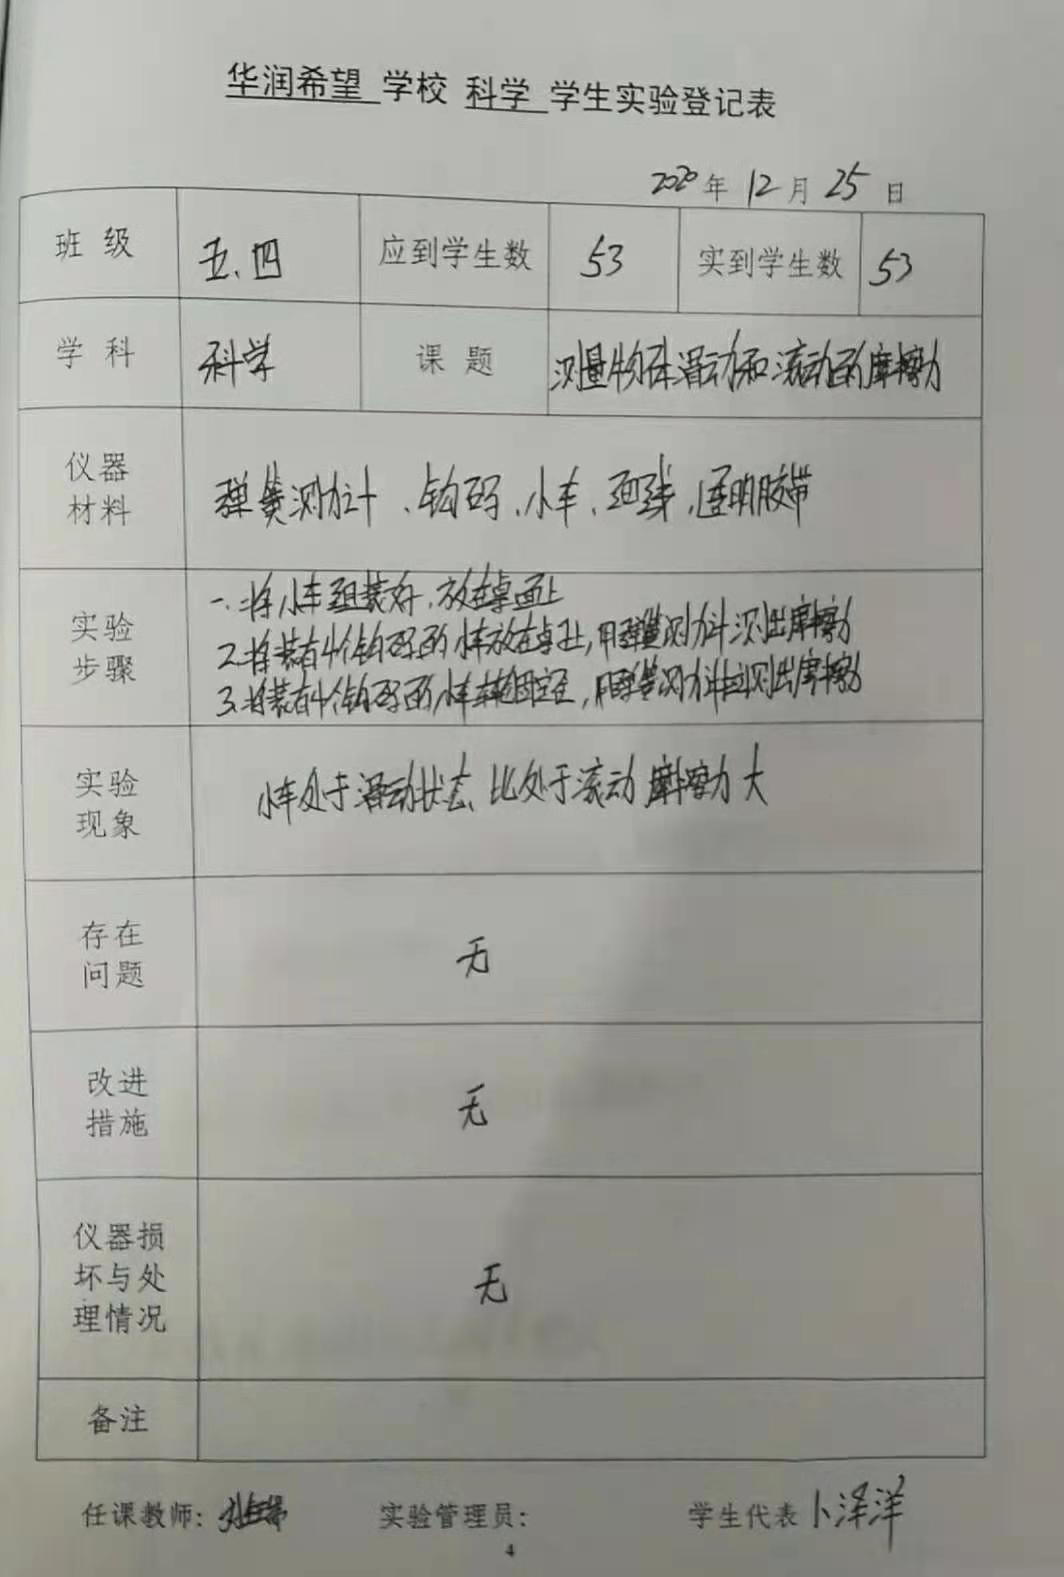 华润希望 学校 科学 学生实验登记表
2020 年 12 月 25 日
班 级 五、四 应到学生数 53 实到学生数 53
学 科 科学 课 题 测量物体滑动和滚动的摩擦力
仪器
材料
弹簧测力计、钩码、小车、透明胶带
实验
步骤
一、将小车组装好,放在桌面上
2、将装有4个钩码的小车放在桌上,用弹簧测力计测出摩擦力
3、将装有4个钩码的小车车轮固定,用弹簧测力计测出摩擦力
实验
现象
小车处于滑动状态比处于滚动摩擦力大
存在
问题
无
改进
措施
无
仪器损
坏与处
理情况
无
备注
任课教师: 实验管理员: 学生代表 卜泽洋
4